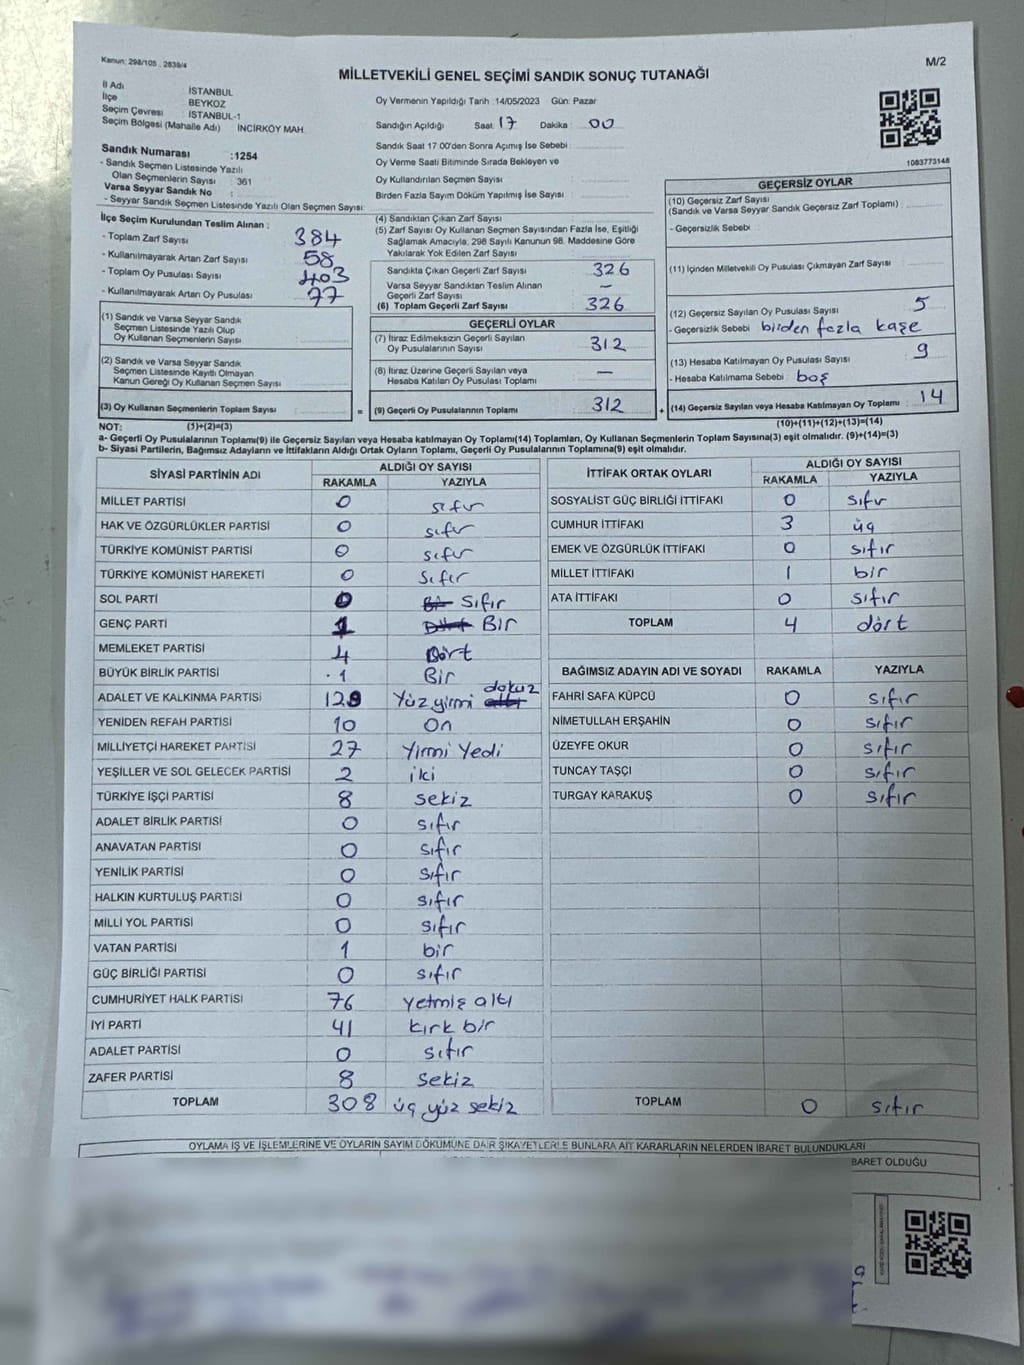 Kanun: 298/105 , 2839/4
M/2
MİLLETVEKİLİ GENEL SEÇİMİ SANDIK SONUÇ TUTANAĞI
İl Adı İSTANBUL
İlçe BEYKOZ
Seçim Çevresi : İSTANBUL-1
Seçim Bölgesi (Mahalle Adı) İNCİRKÖY MAH.
Oy Vermenin Yapıldığı Tarih :14/05/2023 Gün: Pazar
Sandığın Açıldığı Saat: 17 Dakika : 00
Sandık Saat 17:00'den Sonra Açımış İse Sebebi :
Oy Verme Saati Bitiminde Sırada Bekleyen ve
Oy Kullandırılan Seçmen Sayısı :
Birden Fazla Sayım Döküm Yapılmış İse Sayısı :
1083773148
Sandık Numarası :1254
- Sandık Seçmen Listesinde Yazılı
Olan Seçmenlerin Sayısı : 361
Varsa Seyyar Sandık No :
- Seyyar Sandık Seçmen Listesinde Yazılı Olan Seçmen Sayısı:
İlçe Seçim Kurulundan Teslim Alınan :
- Toplam Zarf Sayısı 384
- Kullanılmayarak Artan Zarf Sayısı 58
- Toplam Oy Pusulası Sayısı 403
- Kullanılmayarak Artan Oy Pusulası 77
(1) Sandık ve Varsa Seyyar Sandık
Seçmen Listesinde Yazılı Olup
Oy Kullanan Seçmenlerin Sayısı :
(2) Sandık ve Varsa Seyyar Sandık
Seçmen Listesinde Kayıtlı Olmayan
Kanun Gereği Oy Kullanan Seçmen Sayısı :
(3) Oy Kullanan Seçmenlerin Toplam Sayısı : =
(4) Sandıktan Çıkan Zarf Sayısı :
(5) Zarf Sayısı Oy Kullanan Seçmen Sayısından Fazla İse, Eşitliği
Sağlamak Amacıyla, 298 Sayılı Kanunun 98. Maddesine Göre
Yakılarak Yok Edilen Zarf Sayısı :
Sandıkta Çıkan Geçerli Zarf Sayısı 326
Varsa Seyyar Sandıktan Teslim Alınan
Geçerli Zarf Sayısı : -
(6) Toplam Geçerli Zarf Sayısı : 326
GEÇERLİ OYLAR
(7) İtiraz Edilmeksizin Geçerli Sayılan
Oy Pusulalarının Sayısı : 312
(8) İtiraz Üzerine Geçerli Sayılan veya
Hesaba Katılan Oy Pusulası Toplamı : -
(9) Geçerli Oy Pusulalarının Toplamı : 312 +
GEÇERSİZ OYLAR
(10) Geçersiz Zarf Sayısı
(Sandık ve Varsa Seyyar Sandık Geçersiz Zarf Toplamı) :
- Geçersizlik Sebebi :
(11) İçinden Milletvekili Oy Pusulası Çıkmayan Zarf Sayısı :
(12) Geçersiz Sayılan Oy Pusulası Sayısı : 5
- Geçersizlik Sebebi : birden fazla kaşe
(13) Hesaba Katılmayan Oy Pusulası Sayısı : 9
- Hesaba Katılmama Sebebi : boş
(14) Geçersiz Sayılan veya Hesaba Katılmayan Oy Toplamı : 14
NOT: (1)+(2)=(3) (10)+(11)+(12)+(13)=(14)
a- Geçerli Oy Pusulalarının Toplamı(9) ile Geçersiz Sayılan veya Hesaba katılmayan Oy Toplamı(14) Toplamları, Oy Kullanan Seçmenlerin Toplam Sayısına(3) eşit olmalıdır. (9)+(14)=(3)
b- Siyasi Partilerin, Bağımsız Adayların ve İttifakların Aldığı Ortak Oyların Toplamı, Geçerli Oy Pusulalarının Toplamına(9) eşit olmalıdır.
SİYASİ PARTİNİN ADI ALDIĞI OY SAYISI
RAKAMLA YAZIYLA
MİLLET PARTİSİ 0 sıfır
HAK VE ÖZGÜRLÜKLER PARTİSİ 0 sıfır
TÜRKİYE KOMÜNİST PARTİSİ 0 sıfır
TÜRKİYE KOMÜNİST HAREKETİ 0 sıfır
SOL PARTİ 0 Sıfır
GENÇ PARTİ 1 Bir
MEMLEKET PARTİSİ 4 Dört
BÜYÜK BİRLİK PARTİSİ 1 Bir
ADALET VE KALKINMA PARTİSİ 129 Yüz yirmi dokuz
YENİDEN REFAH PARTİSİ 10 On
MİLLİYETÇİ HAREKET PARTİSİ 27 Yirmi Yedi
YEŞİLLER VE SOL GELECEK PARTİSİ 2 iki
TÜRKİYE İŞÇİ PARTİSİ 8 sekiz
ADALET BİRLİK PARTİSİ 0 sıfır
ANAVATAN PARTİSİ 0 sıfır
YENİLİK PARTİSİ 0 sıfır
HALKIN KURTULUŞ PARTİSİ 0 sıfır
MİLLİ YOL PARTİSİ 0 sıfır
VATAN PARTİSİ 1 bir
GÜÇ BİRLİĞİ PARTİSİ 0 sıfır
CUMHURİYET HALK PARTİSİ 76 Yetmiş altı
İYİ PARTİ 41 kırk bir
ADALET PARTİSİ 0 sıfır
ZAFER PARTİSİ 8 Sekiz
TOPLAM 308 üç yüz sekiz
İTTİFAK ORTAK OYLARI ALDIĞI OY SAYISI
RAKAMLA YAZIYLA
SOSYALİST GÜÇ BİRLİĞİ İTTİFAKI 0 sıfır
CUMHUR İTTİFAKI 3 üç
EMEK VE ÖZGÜRLÜK İTTİFAKI 0 sıfır
MİLLET İTTİFAKI 1 bir
ATA İTTİFAKI 0 sıfır
TOPLAM 4 dört
BAĞIMSIZ ADAYIN ADI VE SOYADI RAKAMLA YAZIYLA
FAHRİ SAFA KÜPCÜ 0 sıfır
NİMETULLAH ERŞAHİN 0 sıfır
ÜZEYFE OKUR 0 sıfır
TUNCAY TAŞÇI 0 sıfır
TURGAY KARAKUŞ 0 sıfır
TOPLAM 0 sıfır
OYLAMA İŞ VE İŞLEMLERİNE VE OYLARIN SAYIM DÖKÜMÜNE DAİR ŞİKAYETLERLE BUNLARA AİT KARARLARIN NELERDEN İBARET BULUNDUKLARI
BARET OLDUĞU